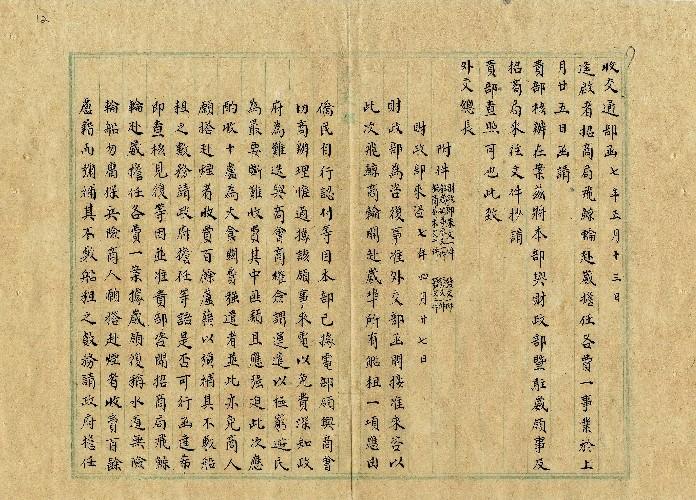 12
收交通部函七年五月十三日
逕啟者招商局飛鯨輪赴崴擔任各費一事業於上
月廿五日函請
貴部核辦在案茲將本部與財政部暨駐崴領事及
招商局來往文件抄請
貴部查照可也此致
外交總長
附件
財政部來咨七年四月廿七日
財政部為咨復事准外交部函開接准來咨以
此次飛鯨商輪開赴崴埠所有船租一項應由
僑民自行認付等因本部已據電部領與商會
切商辦理惟迺據該領事來電以免費深知政
府為難迭與商會商權僉謂運送以極窮避民
為最要斷難收費其中匪類且應強迫此次應
酌收十盧為大會關費強遣者並此亦免商人
願搭赴煙者收費百餘盧藉以彌補其不敷船
租之數務請政府擔任等語是否可行函達希
即查核見復等因並准貴部咨開招商局飛鯨
輪赴崴擔任各費一案據崴領復稱水道無險
輪船勿庸保兵險商人願搭赴煙者收費百餘
盧藉而彌補其不敷船租之數務請政府擔任